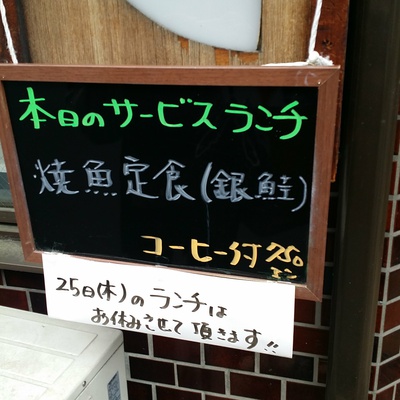 本日のサービスランチ
焼魚定食(銀鮭)
コーヒー付750
エン
25日(木)のランチは
お休みさせて頂きます!!